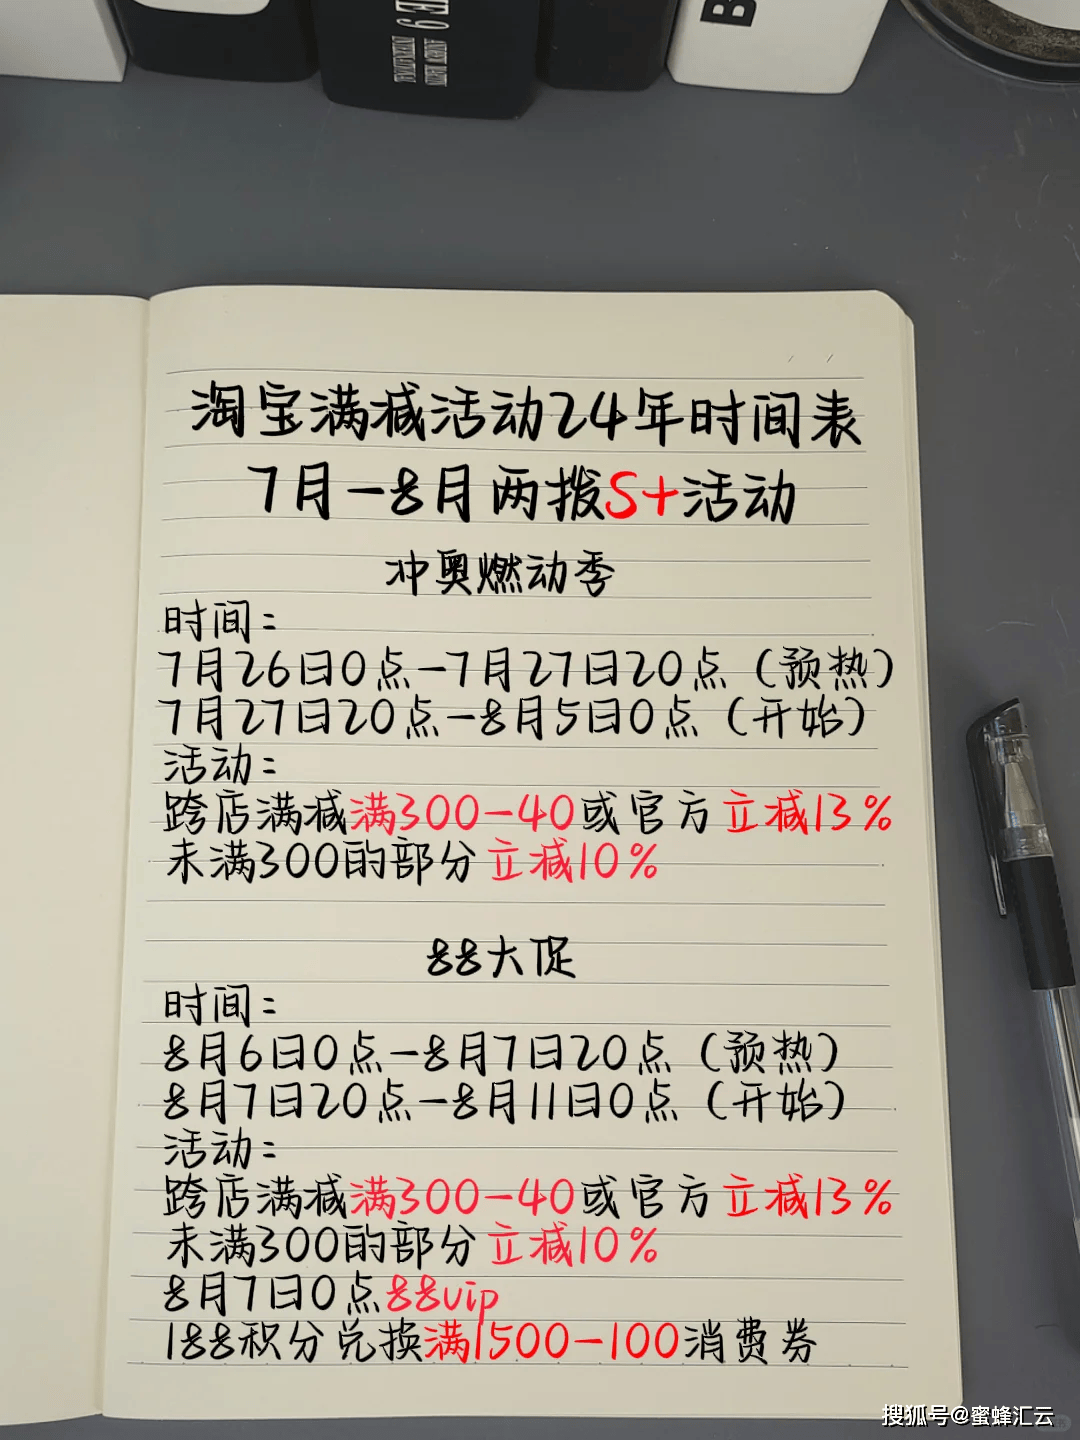 E 9
B
淘宝满减活动24年时间表
7月-8月两拨S+活动
冲奥燃动季
时间:
7月26日0点-7月27日20点(预热)
7月27日20点-8月5日0点(开始)
活动:
跨店满减满300-40或官方立减13%
未满300的部分立减10%
88大促
时间:
8月6日0点-8月7日20点(预热)
8月7日20点-8月11日0点(开始)
活动:
跨店满减满300-40或官方立减13%
未满300的部分立减10%
8月7日0点88vip
188积分兑换满1500-100消费券
搜狐号@蜜蜂汇云